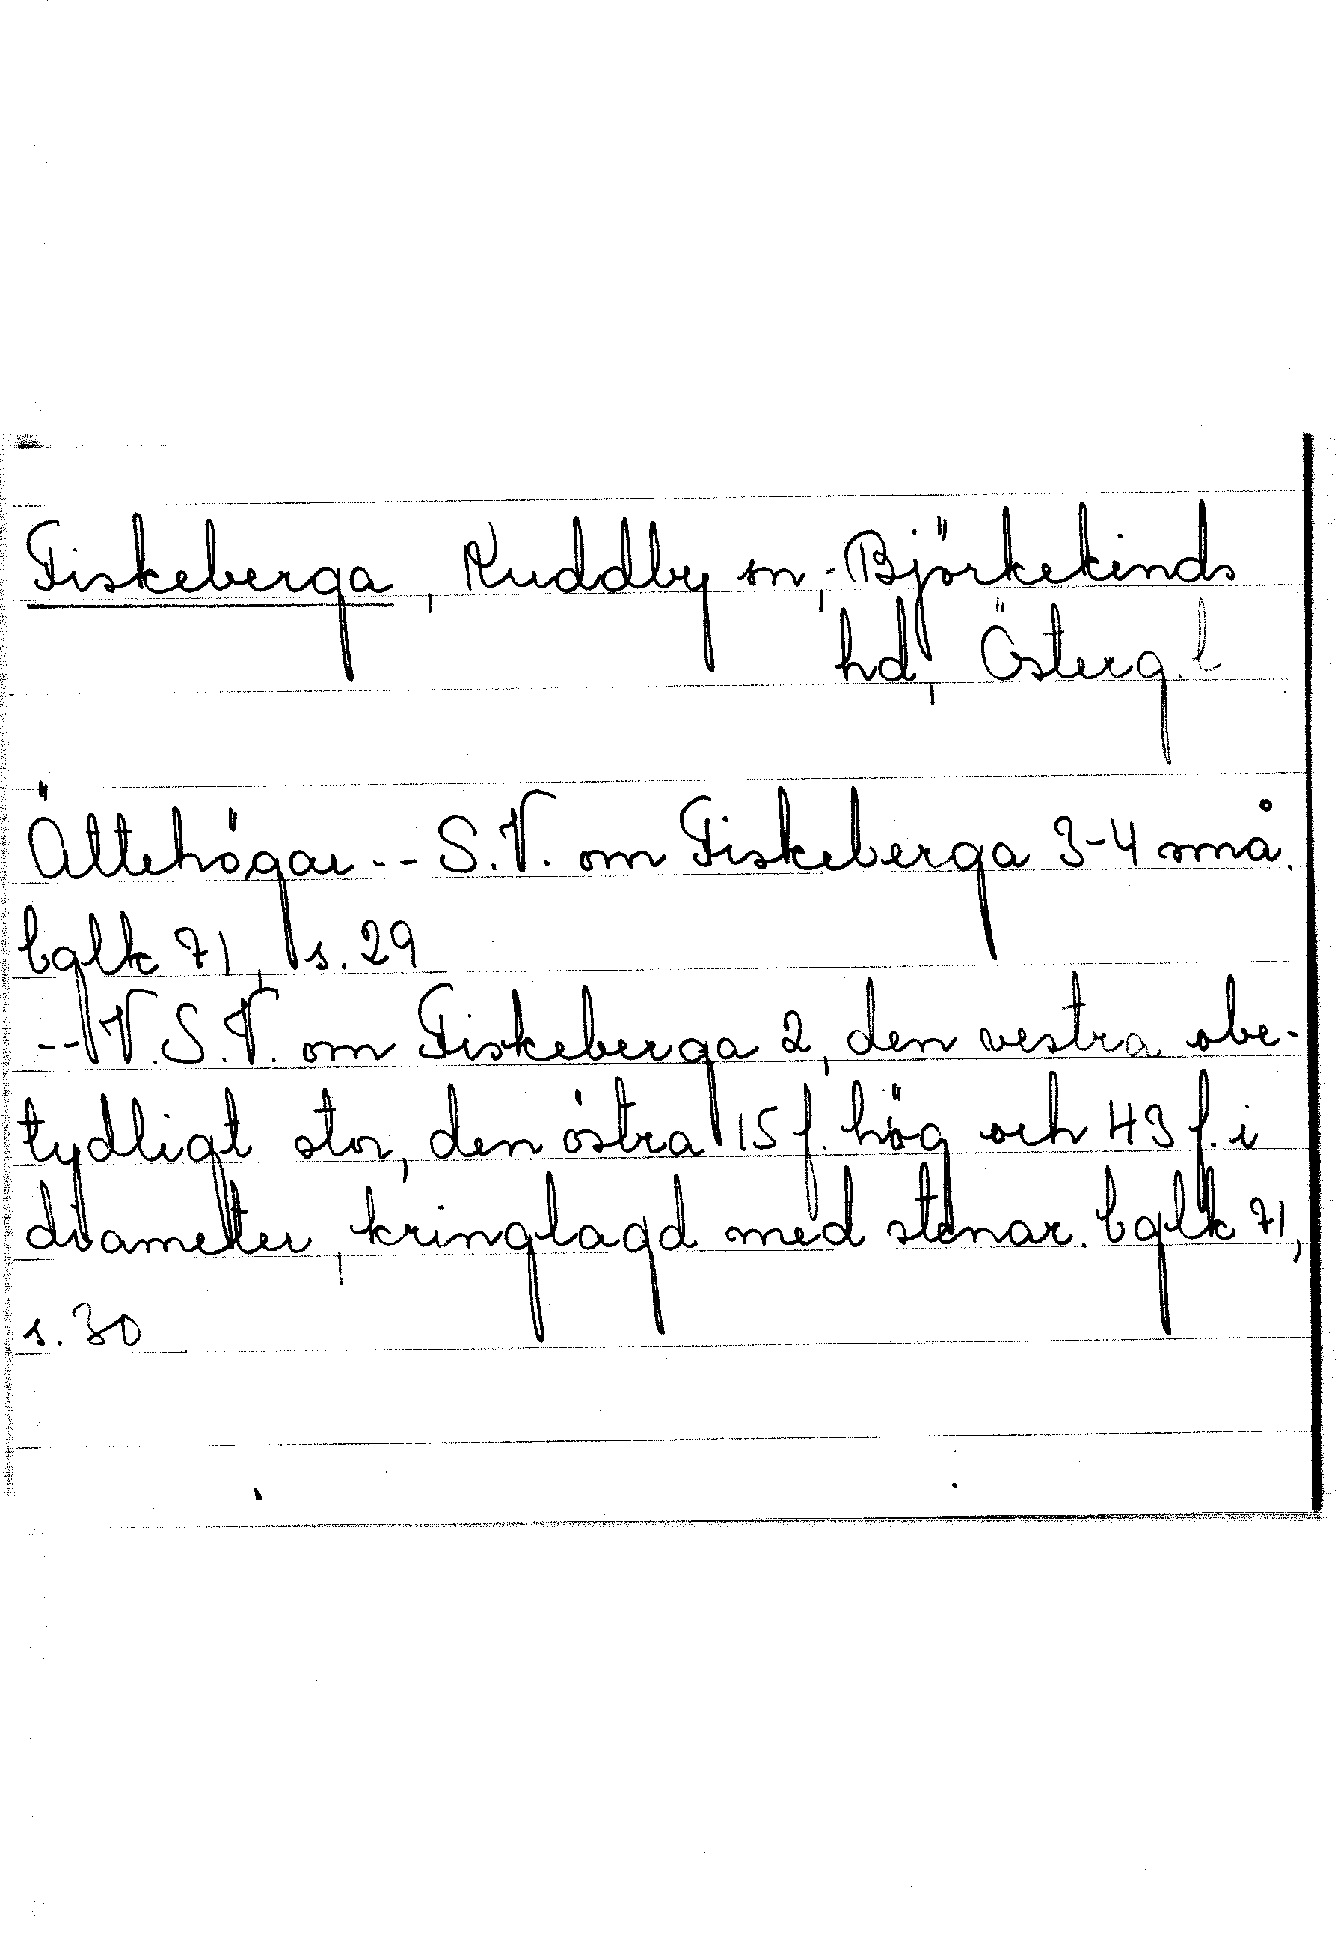 Fiskeberga, Kuddby sn, Björkekinds
hd, Österg. l
Ättehögar -- S.V. om Fiskeberga 3-4 små.
bglk 71, s. 29
-- V.S.V. om Fiskeberga 2, den vestra obe-
tydligt stor, den östra 15 f. hög och 43 f. i
diameter, kringlagd med stenar. bglk 71,
s. 30